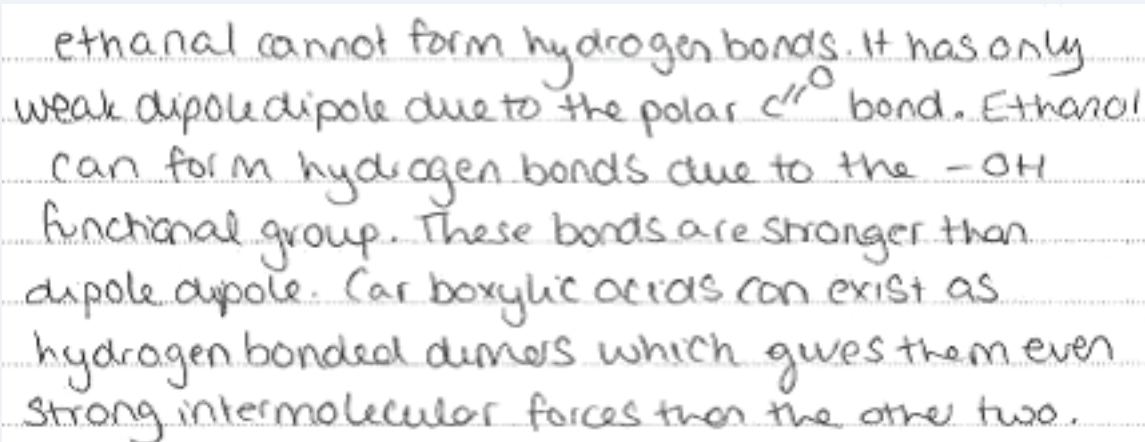 ethanal cannot form hydrogen bonds. It has only
weak dipole dipole due to the polar C=O bond. Ethanol
can form hydrogen bonds due to the -OH
functional group. These bonds are stronger than
dipole dipole. Carboxylic acids can exist as
hydrogen bonded dimers which gives them even
strong intermolecular forces than the other two.